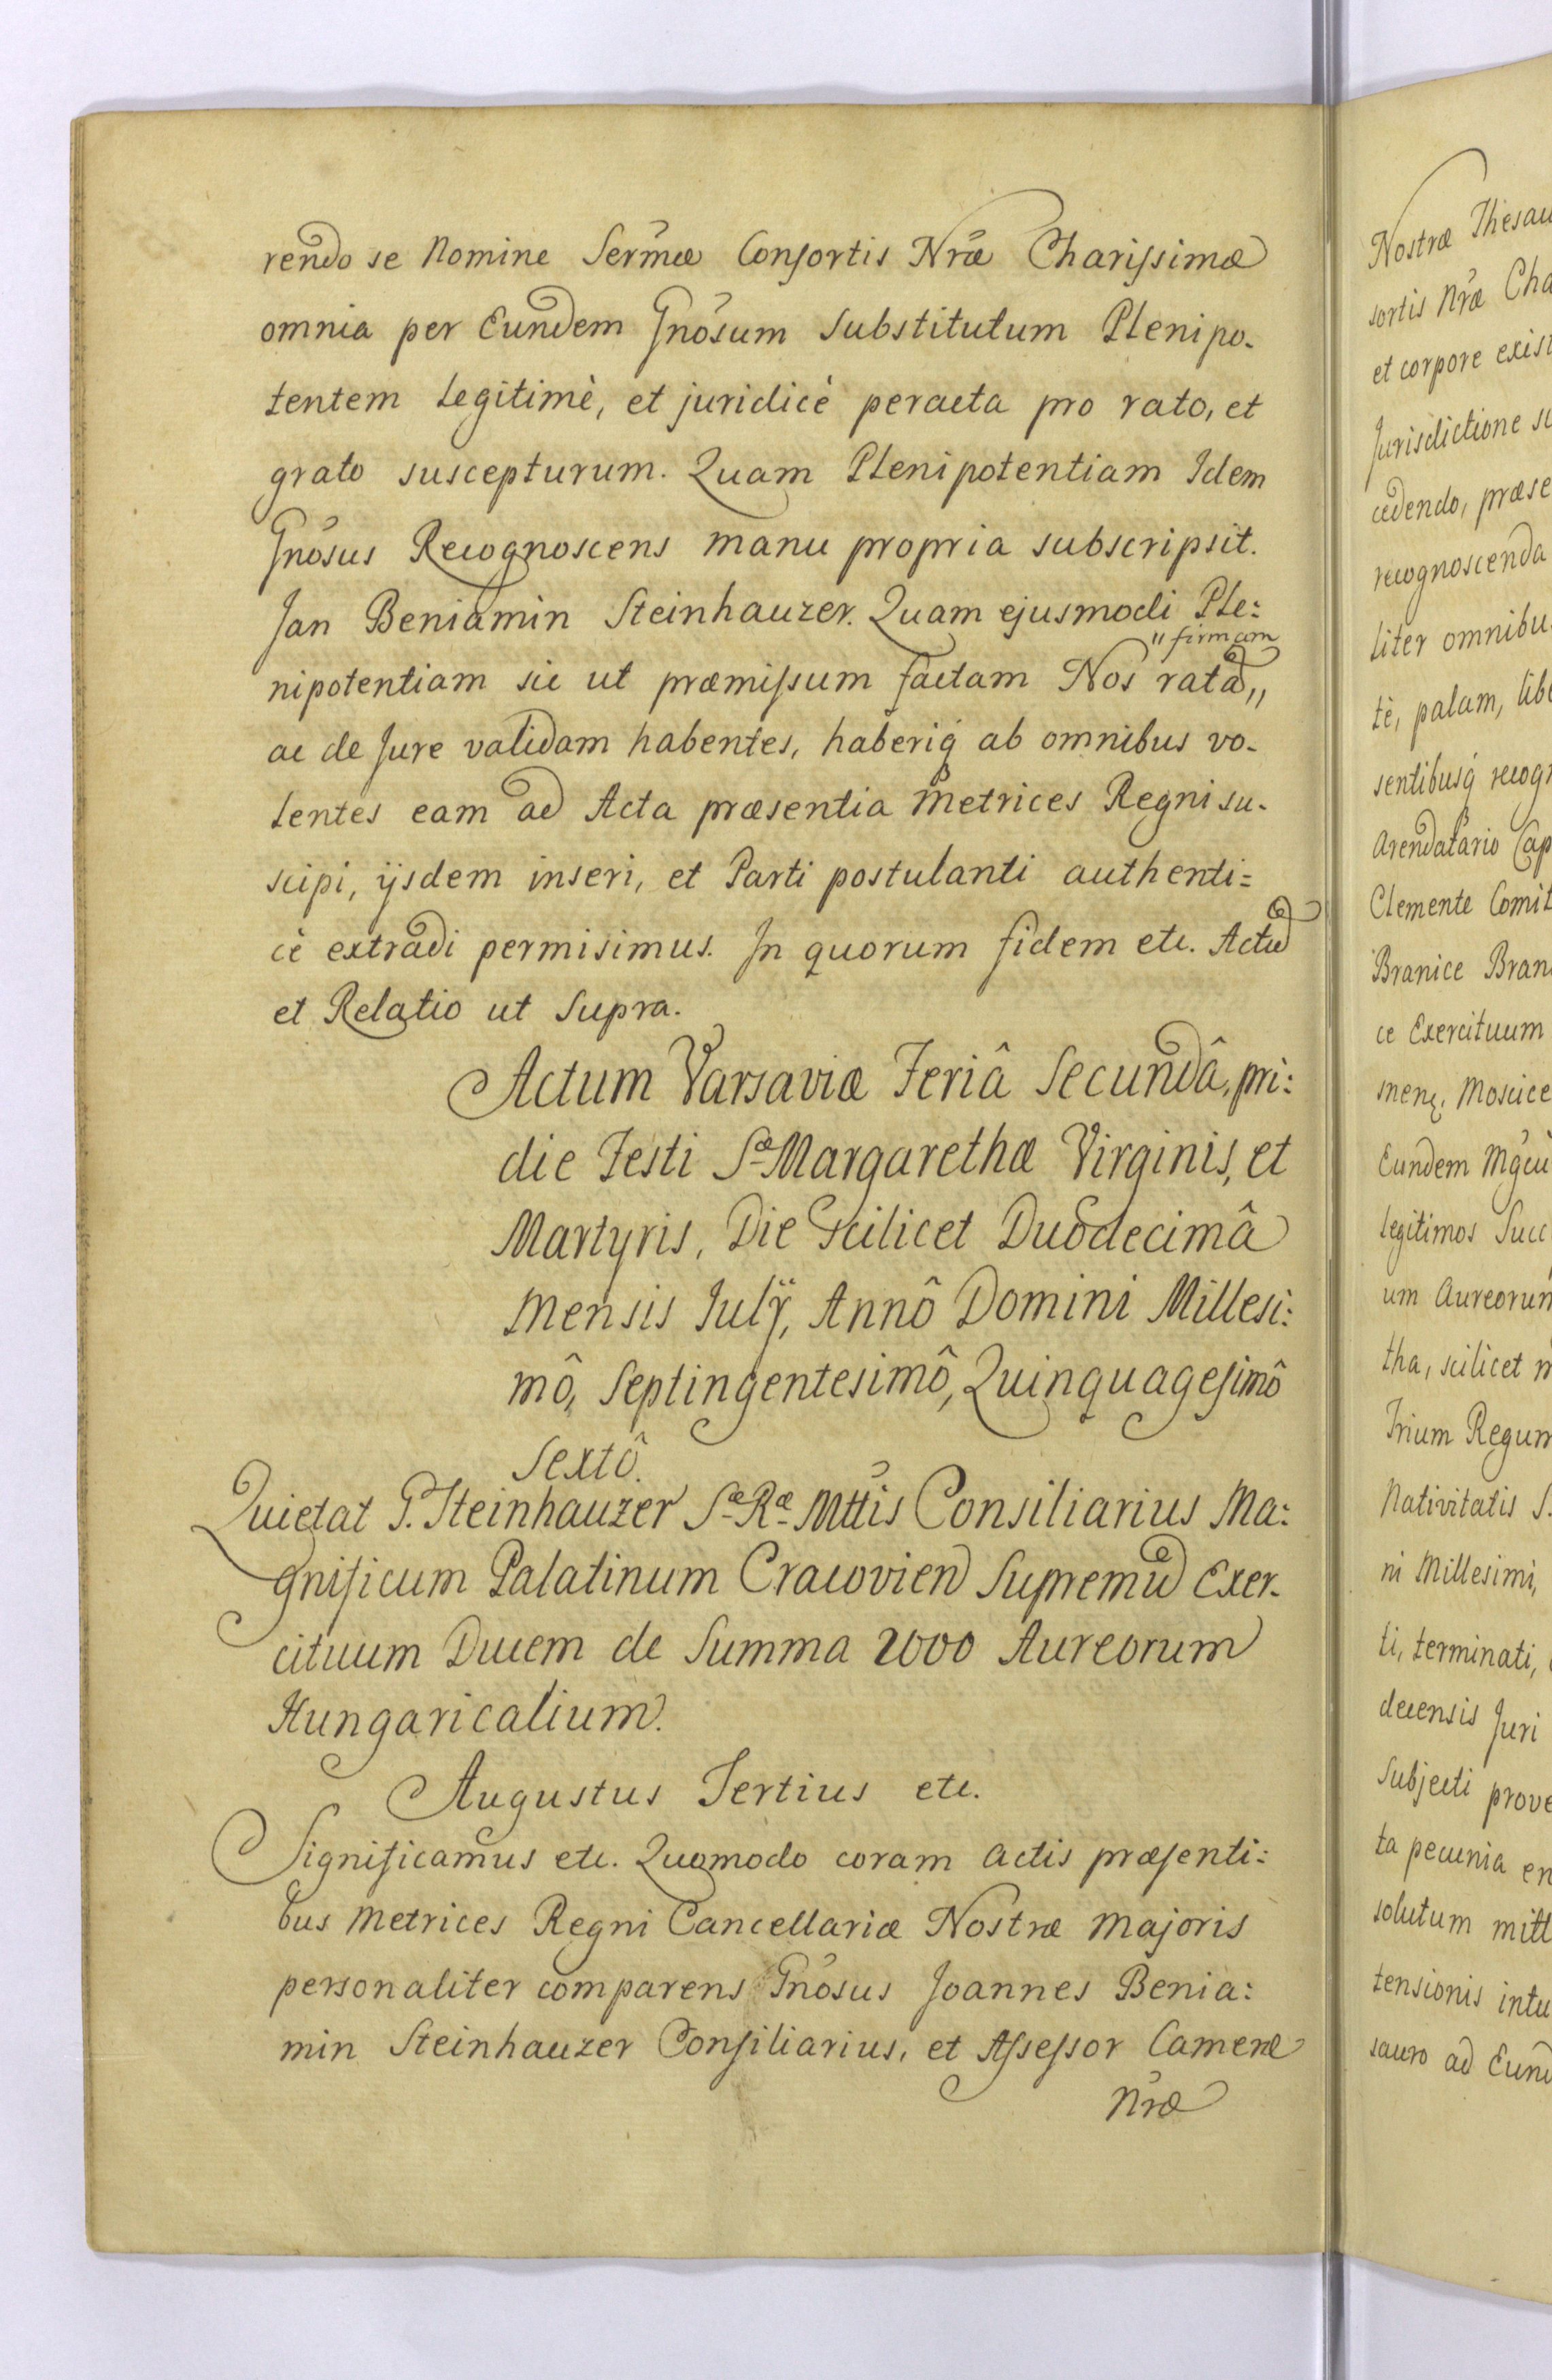 rendo se Nomine Sermæ Consortis Nræ Charissimæ
omnia per Eundem Gnosum Substitutum Plenipo-
tentem Legitimè, et juridicè peracta pro rato, et
grato suscepturum. Quam Plenipotentiam Idem
Gnosus Recognoscens manu propria subscripsit.
Jan Beniamin Steinhauzer. Quam ejusmodi Ple:
" firmam
nipotentiam sic ut præmissum factam Nos rata "
ac de Jure validam habentes, haberiq ab omnibus vo-
lentes eam ad Acta præsentia Metrices Regni su-
scipi, ijsdem inseri, et Parti postulanti authenti=
cè extradi permisimus. In quorum fidem etc. Actu
et Relatio ut Supra.
Actum Varsaviæ Feriâ Secundâ, pri:
die Festi Sæ Margarethæ Virginis, et
Martyris, Die Scilicet Duodecimâ
Mensis Julÿ, Annô Domini Millesi:
mô, Septingentesimô, Quinquagesimô
Sextô.
Quietat G. Steinhauzer Sæ Ræ Mttis Consiliarius Ma:
gnificum Palatinum Cracovien Supremu Exer-
cituum Ducem de Summa 2000 Aureorum
Hungaricalium.
Augustus Tertius etc.
Significamus etc. Quomodo coram Actis præsenti:
bus Metrices Regni Cancellariæ Nostræ Majoris
personaliter comparens Gnosus Joannes Benia:
min Steinhauzer Consiliarius, et Assessor Cameræ
Nræ
Nostræ Thesau
sortis Nræ Cha
et corpore exist
Jurisdictione
cedendo, præse
recognoscenda
liter omnibu
tè, palam, lib
sentibusq recog
Arendatario Cap
Clemente Comit
Branice Bran
ce Exercituum
Moscice
Eundem
legitimos Succ
um Aureorum
tha, scilicet
Trium Regum
Nativitatis S.
ni Millesimi,
ti, terminati,
decensis Juri
Subjecti prove
ta pecunia en
solutum mitt
tensionis intu
sauro ad Eund